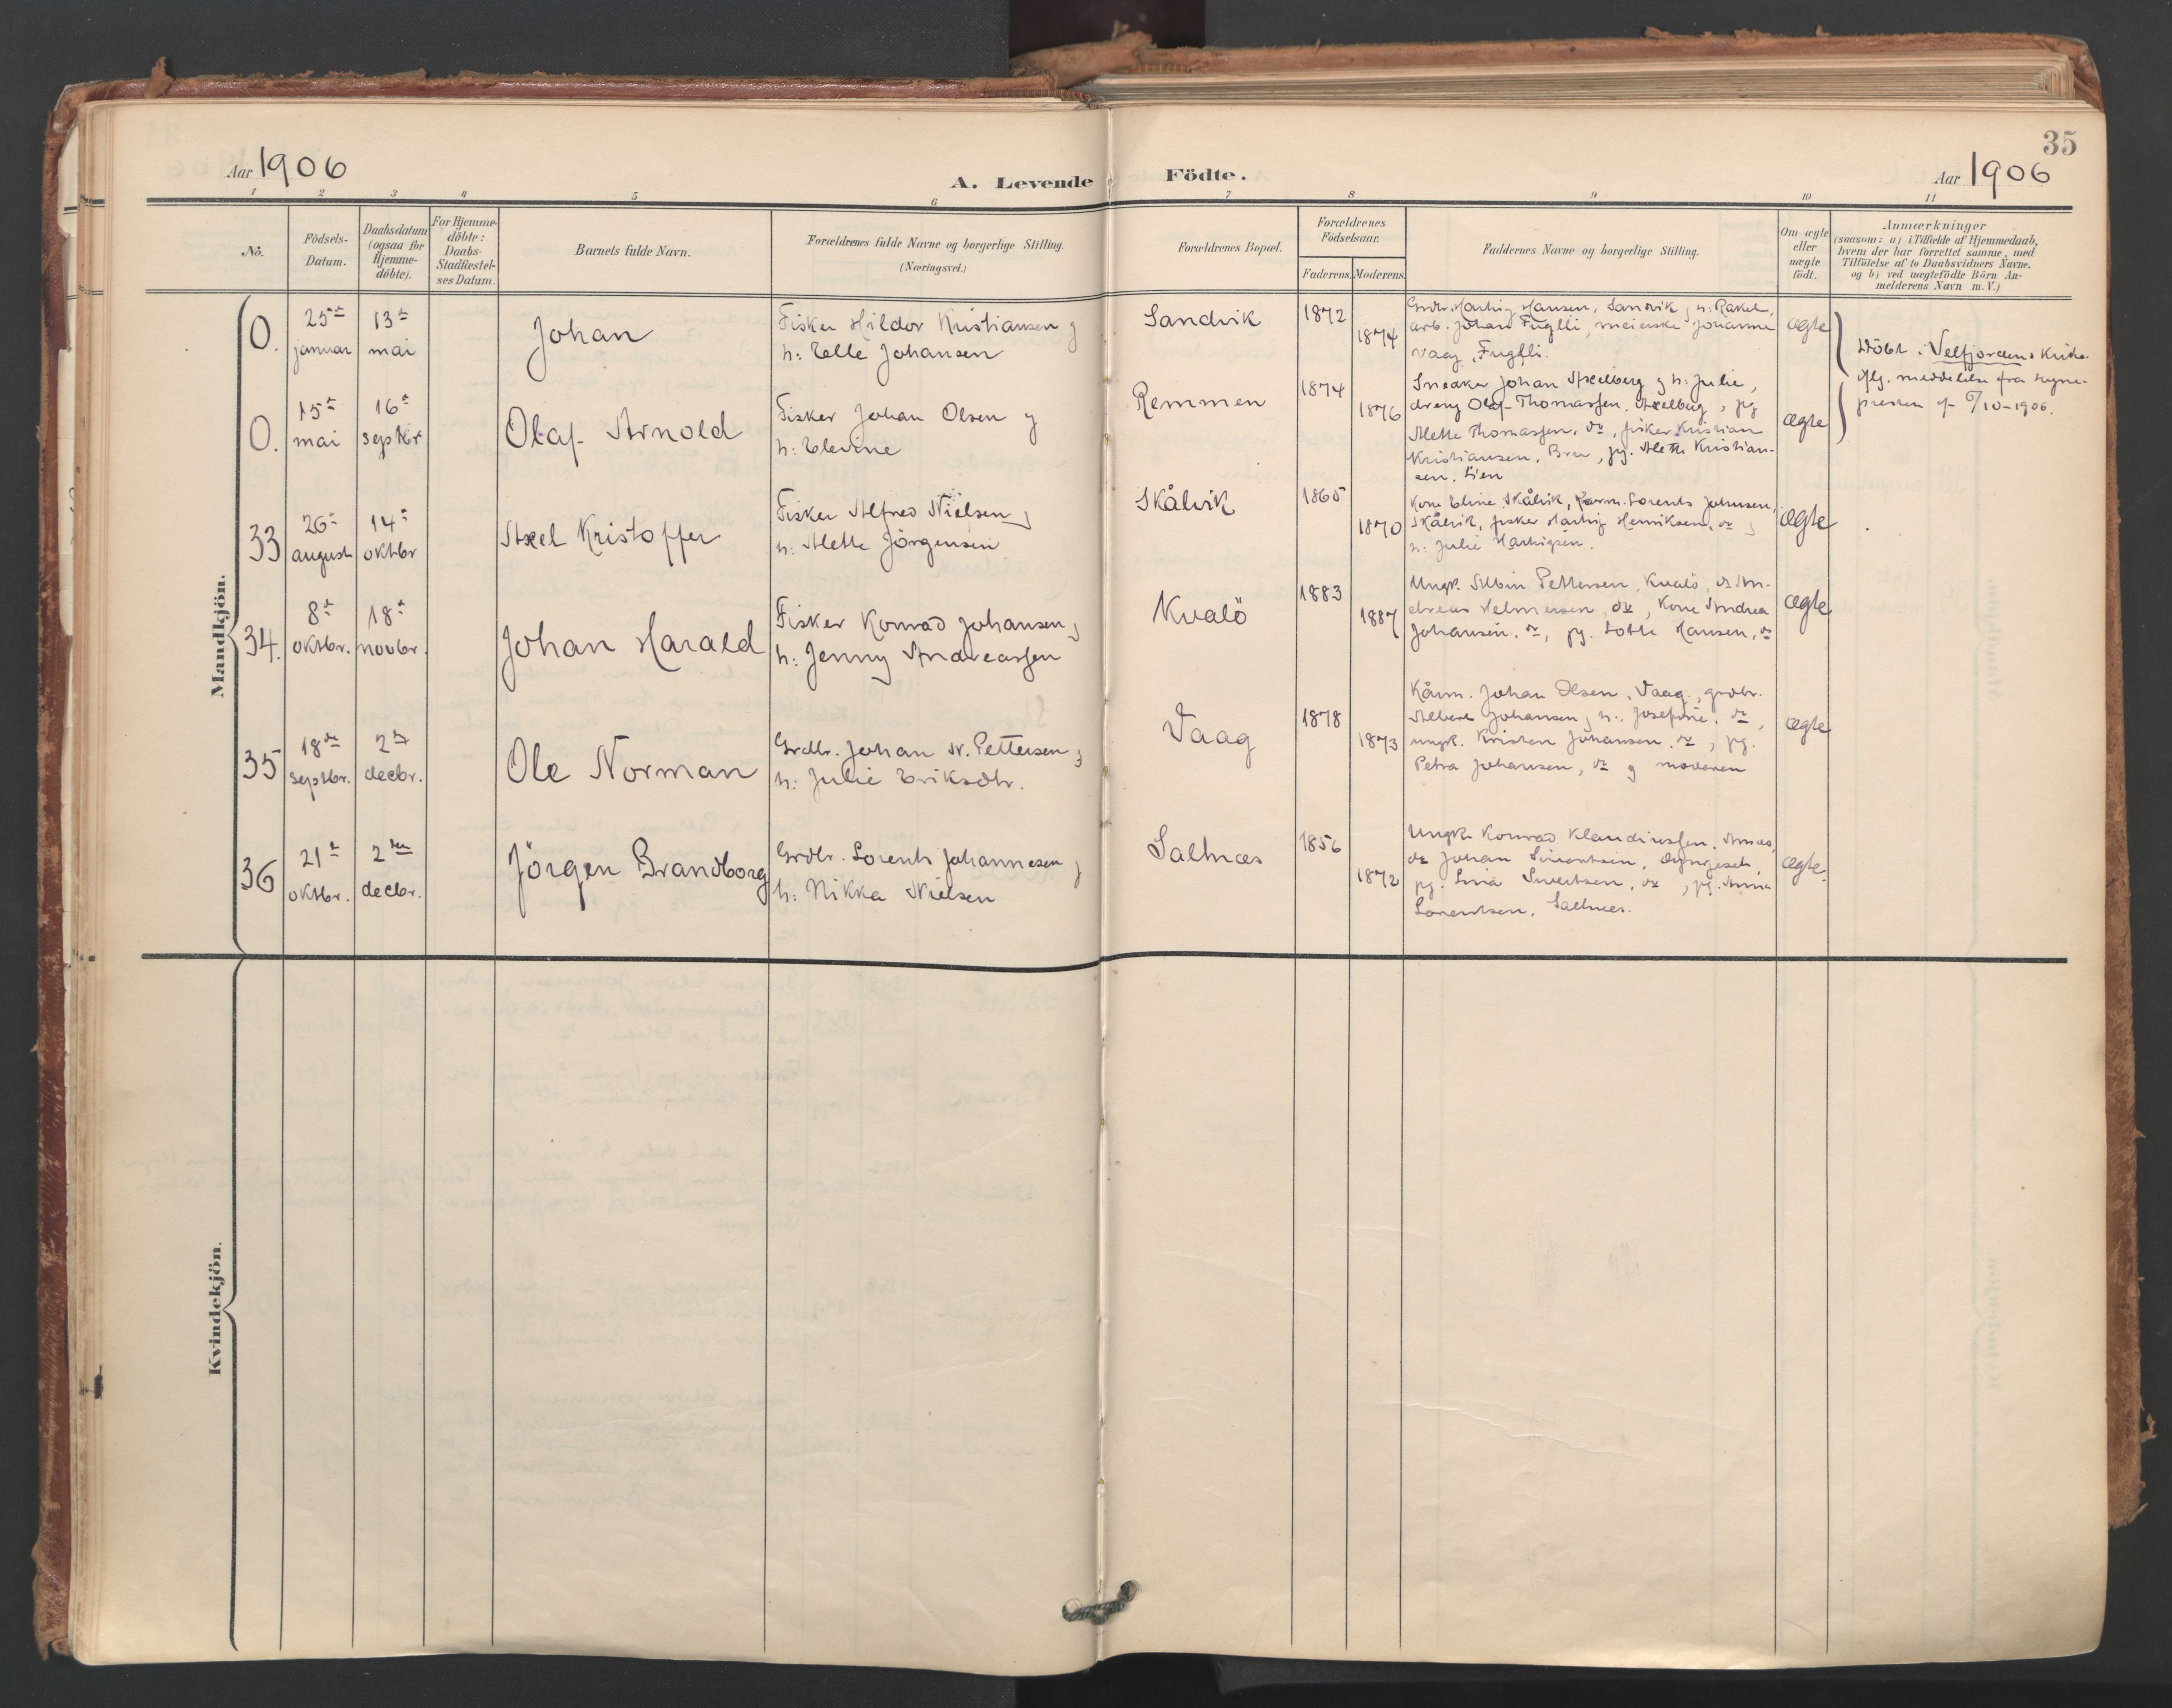 35
Aar 1906
A. Levende Födte.
Aar 1906
1 2 3 4 5 6 7 8 9 10 11
No.
Födsels-
Datum.
Daabsdatum
(ogsaa for
Hjemme-
döbte).
For Hjemme-
döbte:
Daabs-
Stadfæstel-
ses Datum.
Barnets fulde Navn.
Forældrenes fulde Navne og borgerlige Stilling.
(Næringsvei.)
Forældrenes Bopæl.
Forældrenes
Födselsaar.
Faderens. Moderens.
Faddernes Navne og borgerlige Stilling.
Om ægte
eller
uægte
födt.
Anmærkninger
(saasom: a) i Tilfælde af Hjemmedaab,
hvem der har forrettet samme, med
Tilföielse af to Daabsvidners Navne.
og b) ved uægtefödte Börn An-
melderens Navn m. V.)
Mandkjön.
0.
25de
januar
13de
mai
Johan
Fisker Hildor Kristiansen og
h: Elle Johansen
Sandvik
1872
1874
Grdbr. Hartvig Hansen, Sandvik, h: Rakel,
arb. Johan Fuglli, meierske Johanne
Vaag, Fuglli.
ægte
Döbt i Velfjordens Kirke
iflg. meddelelse fra sogne-
presten af 6/10-1906.
0.
15de
mai
16de
septbr
Olaf Arnold
Fisker Johan Olsen og
h: Elevine
Remmen
1874
1876
Snedker Johan Axelberg og h: Julie,
dreng Olaf Thomassen, Axelberg, pg
Alette Thomassen, do, fisker Kristian
Kristiansen, Bru, pg. Alette Kristian-
sen, Lien
ægte
33
26de
august
14de
oktbr
Axel Kristoffer
Fisker Alfred Nielsen og
h: Alette Jörgensen
Skålvik
1865
1870
Kone Eline Skålvik, Kårm. Lorents Johnsen,
Skålvik, fisker Hartvig Henriksen, do og
h: Julie Hartvigsen.
ægte
34.
8de
oktbr.
18de
novbr.
Johan Harald
Fisker Konrad Johansen og
h: Jenny Andreassen
Kvalö
1883
1887
Ungk. Albin Pettersen, Kvalö, do An-
dreas Helmersen, do, Kone Andrea
Johansen, do, pg. Lotte Hansen, do
ægte
35
18de
septbr.
2den
decbr.
Ole Norman
Grdbr. Johan N. Pettersen og
h: Julie Eriksdtr.
Vaag
1878
1873
Kårm. Johan Olsen, Vaag, grdbr.
Albert Johansen, h: Josefine, do,
ungk. Kristen Johansen, do, pg.
Petra Johansen, do og moderen
ægte
36
21de
oktbr.
2den
decbr.
Jörgen Brandborg
Grdbr. Lorents Johannesen og
h: Nikka Nielsen
Saltnæs
1856
1872
Ungk. Konrad Klaudiussen,
do Johan Sivertsen,
pg. Lina Sivertsen, do, pg. Anna
Lorentsen, Saltnæs.
ægte.
Kvindekjön.